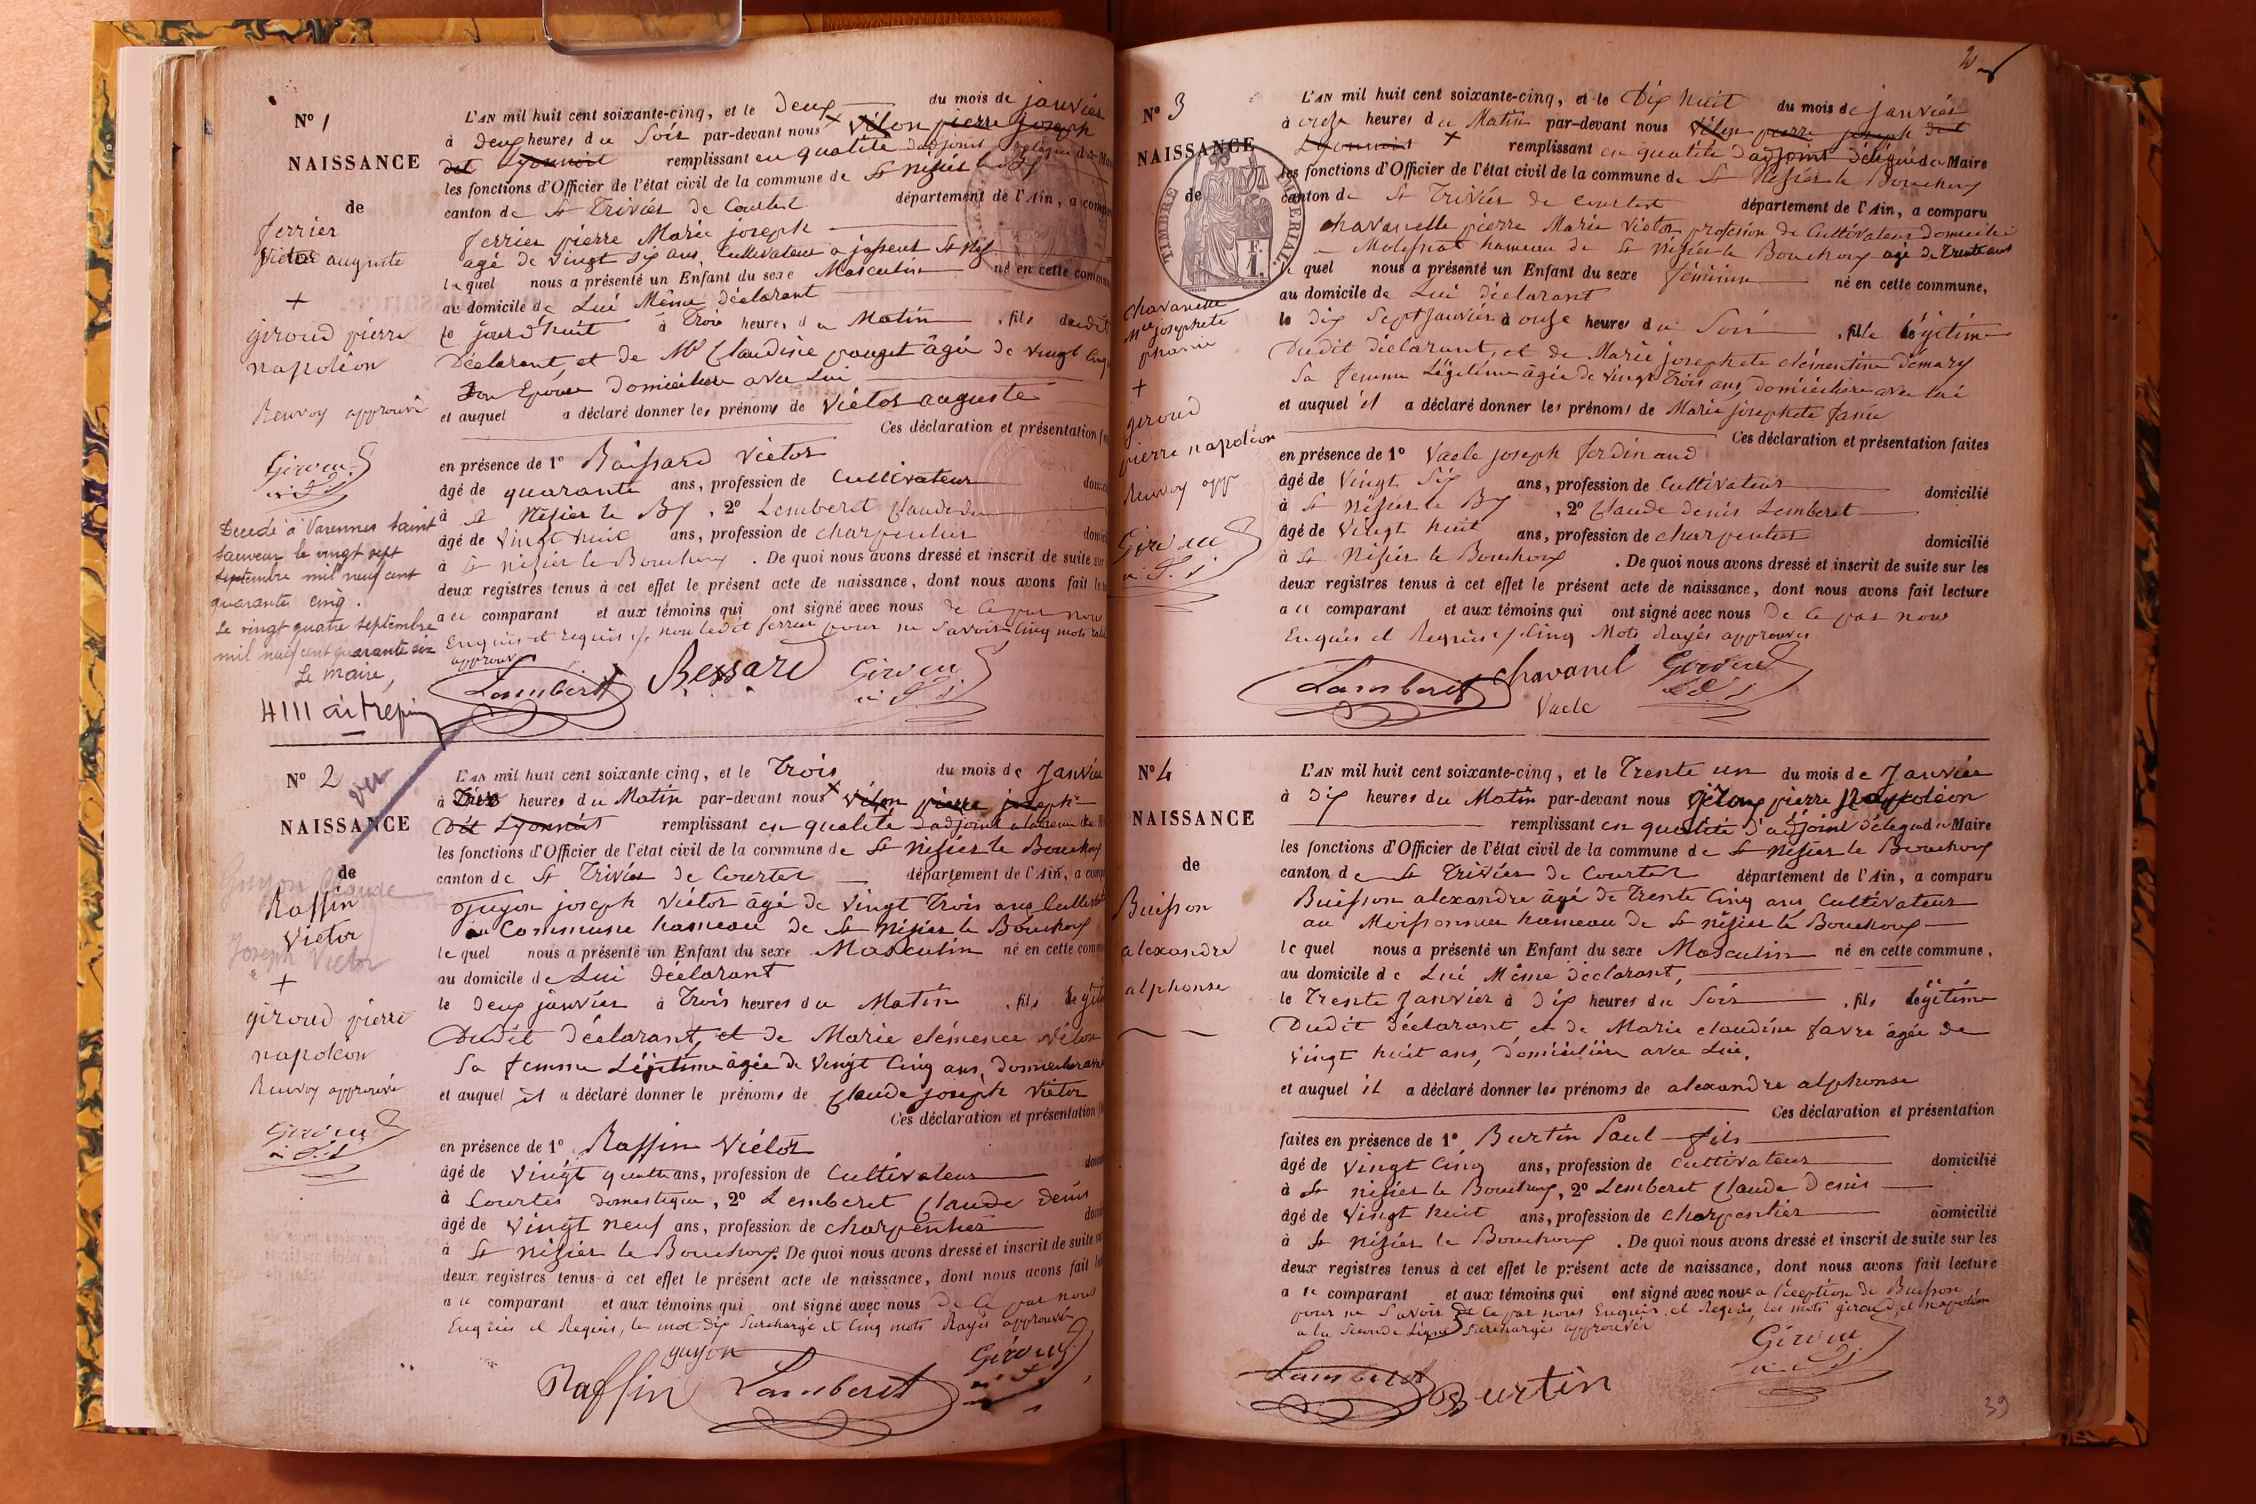 N° 1
NAISSANCE
de
ferrier
Victor auguste
+
giroud pierre
napoléon
Renvoy approuvé
Giroud
Decedé à Varennes Saint
Sauveur le vingt sept
septembre mil neuf cent
quarante cinq.
Le vingt quatre septembre
mil neuf cent quarante six
Le Maire,
L'AN mil huit cent soixante-cinq, et le deux du mois de janvier
à deux heures du Soir par-devant nous vélon pierre joseph
dit Lyonnais remplissant en qualité d'adjoint délégué du
les fonctions d'Officier de l'état civil de la commune de St Nisier le By
canton de St Trivier de Courtes département de l'Ain, a comp
ferrier pierre Marie joseph
agé de vingt six ans, Cultivateur a St Nis
le quel nous a présenté un Enfant du sexe Masculin né en cette commun
au domicile de Lui Même déclarant
le jour d'huit à Trois heures du Matin , fils dudit
Déclarant, et de Me Claudine pouget âgée de vingt Cinq
Son Epouse domiciliée avec Lui
et auquel a déclaré donner les prénoms de Victor auguste
Ces déclaration et présentation
en présence de 1° Baissard Victor
âgé de quarante ans, profession de Cultivateur
à St Nisier le By , 2° Lemberet Claude
âgé de Vingt huit ans, profession de charpentier
à St nisier le Bouchoux . De quoi nous avons dressé et inscrit de suite sur
deux registres tenus à cet effet le présent acte de naissance, dont nous avons fait le
a u comparant et aux témoins qui ont signé avec nous de ce par nous
Enquis et requis, non ledit ferrier pour ne Savoir Cinq mots
approuvé
Lamberet Bessard Giroud
N° 2
vu
NAISSANCE
de
Guyon Claude
Raffin
Victor
Joseph Victor
+
giroud pierre
napoléon
Renvoy approuvé
Giroud
L'AN mil huit cent soixante cinq, et le Trois du mois de Janvier
à Dix heures du Matin par-devant nous vélon pierre joseph
Dit Lyonnais remplissant en qualité d'adjoint
les fonctions d'Officier de l'état civil de la commune de St Nisier le Bouchoux
canton de St Trivier de Courtes département de l'Ain, a comp
Guyon joseph Victor âgé de Vingt Trois ans Cultivat
au Commune hameau de St Nisier le Bouchoux
le quel nous a présenté un Enfant du sexe Masculin né en cette comm
au domicile de Lui déclarant
le deux janvier à Trois heures du Matin , fils légiti
Dudit déclarant, et de Marie clémence Vélon
Sa femme Légitime âgée de Vingt Cinq ans, domiciliée avec
et auquel il a déclaré donner le prénoms de Claude joseph Victor
Ces déclaration et présentation
en présence de 1° Raffin Victor
âgé de Vingt quatre ans, profession de Cultivateur
à Courtes domestique, 2° Lemberet Claude denis
âgé de Vingt neuf ans, profession de charpentier
à St nisier le Bouchoux. De quoi nous avons dressé et inscrit de suite
deux registres tenus à cet effet le présent acte de naissance, dont nous avons fait
a u comparant et aux témoins qui ont signé avec nous de ce par nous
Enquis et Requis, le mot dix Surchargé et Cinq mots Rayés approuvé
guyon
Raffin Lamberet Giroud
N° 3
NAISSANCE
de
TIMBRE IMPERIAL
chavanelle
Mie josephete
phanie
+
giroud
pierre napoléon
Renvoy app
Giroud
L'AN mil huit cent soixante-cinq, et le Dix huit du mois de janvier
à onze heures du Matin par-devant nous Vélon pierre joseph dit
Lyonnais remplissant en qualité d'adjoint délégué du Maire
les fonctions d'Officier de l'état civil de la commune de St Nisier le Bouchoux
canton de St Trivier de courtes département de l'Ain, a comparu
chavanelle pierre Marie Victor profession de Cultivateur domicilié
a hameau de St Nisier le Bouchoux agé de Trente ans
le quel nous a présenté un Enfant du sexe féminin né en cette commune,
au domicile de Lui déclarant
le Dix Sept Janvier à onze heures du Soir , fille légitime
Dudit déclarant, et de Marie josephete clémentine démary
Sa femme Légitime âgée de vingt Trois ans, domiciliée avec lui
et auquel il a déclaré donner les prénoms de Marie josephete fanie
Ces déclaration et présentation faites
en présence de 1° Vacle joseph ferdinand
âgé de Vingt Six ans, profession de Cultivateur domicilié
à St Nisier le By , 2° Claude denis Lemberet
âgé de Vingt huit ans, profession de charpentier domicilié
à St Nisier le Bouchoux . De quoi nous avons dressé et inscrit de suite sur les
deux registres tenus à cet effet le présent acte de naissance, dont nous avons fait lecture
a u comparant et aux témoins qui ont signé avec nous De ce par nous
Enquis et Requis, Cinq Mots Rayés approuvés
Lamberet chavanel Giroud
Vacle
N° 4
NAISSANCE
de
Buisson
alexandre
alphonse
L'AN mil huit cent soixante-cinq, et le Trente un du mois de Janvier
à Dix heures du Matin par-devant nous giroud pierre Napoléon
remplissant en qualité d'adjoint délégué du Maire
les fonctions d'Officier de l'état civil de la commune de St Nisier le Bouchoux
canton de St Trivier de Courtes département de l'Ain, a comparu
Buisson alexandre âgé de Trente Cinq ans Cultivateur
au Moissonnier hameau de St nisier le Bouchoux
le quel nous a présenté un Enfant du sexe Masculin né en cette commune,
au domicile de Lui Même déclarant,
le Trente Janvier à Dix heures du Soir , fils légitime
Dudit déclarant et de Marie claudine favre âgée de
vingt huit ans, domiciliée avec Lui.
et auquel il a déclaré donner les prénoms de alexandre alphonse
Ces déclaration et présentation
faites en présence de 1° Burtin Paul fils
âgé de Vingt Cinq ans, profession de Cultivateur domicilié
à St nisier le Bouchoux, 2° Lemberet Claude Denis
âgé de Vingt huit ans, profession de charpentier domicilié
à St nisier le Bouchoux . De quoi nous avons dressé et inscrit de suite sur les
deux registres tenus à cet effet le présent acte de naissance, dont nous avons fait lecture
a u comparant et aux témoins qui ont signé avec nous a l'éception de Buisson
pour ne Savoir de ce par nous Enquis et Requis, les mots giroud et napoléon
a la Seconde Ligne Surchargés approuvés
Lamberet Burtin Giroud
39